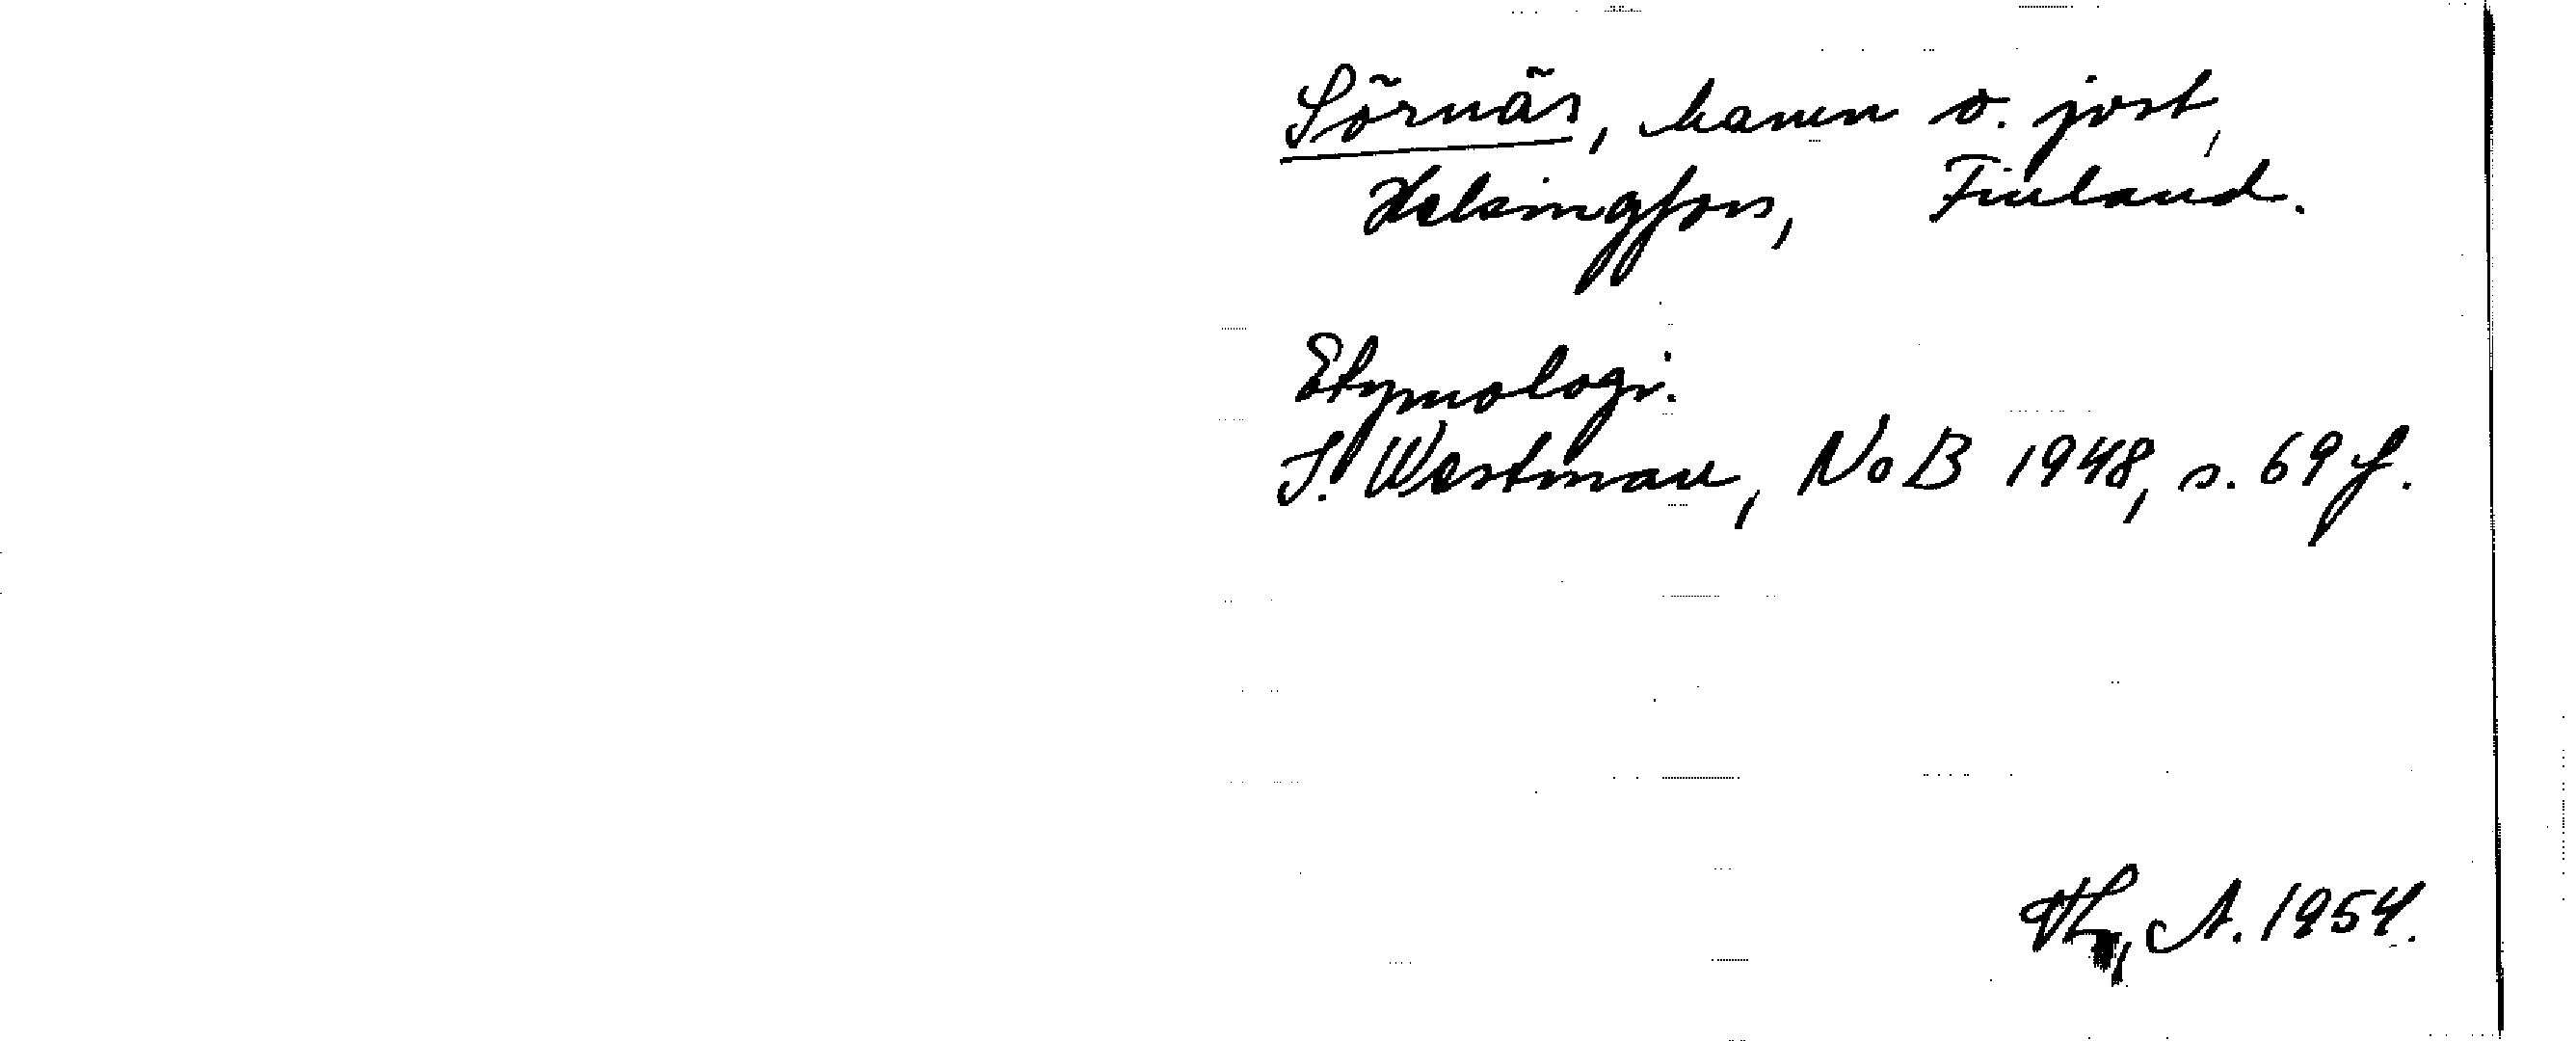 Sörnäs, hamn o. jost,
Helsingfors, Finland.
Etymologi.
I. Westman, NoB 1948, s. 69 f.
A. 1954.